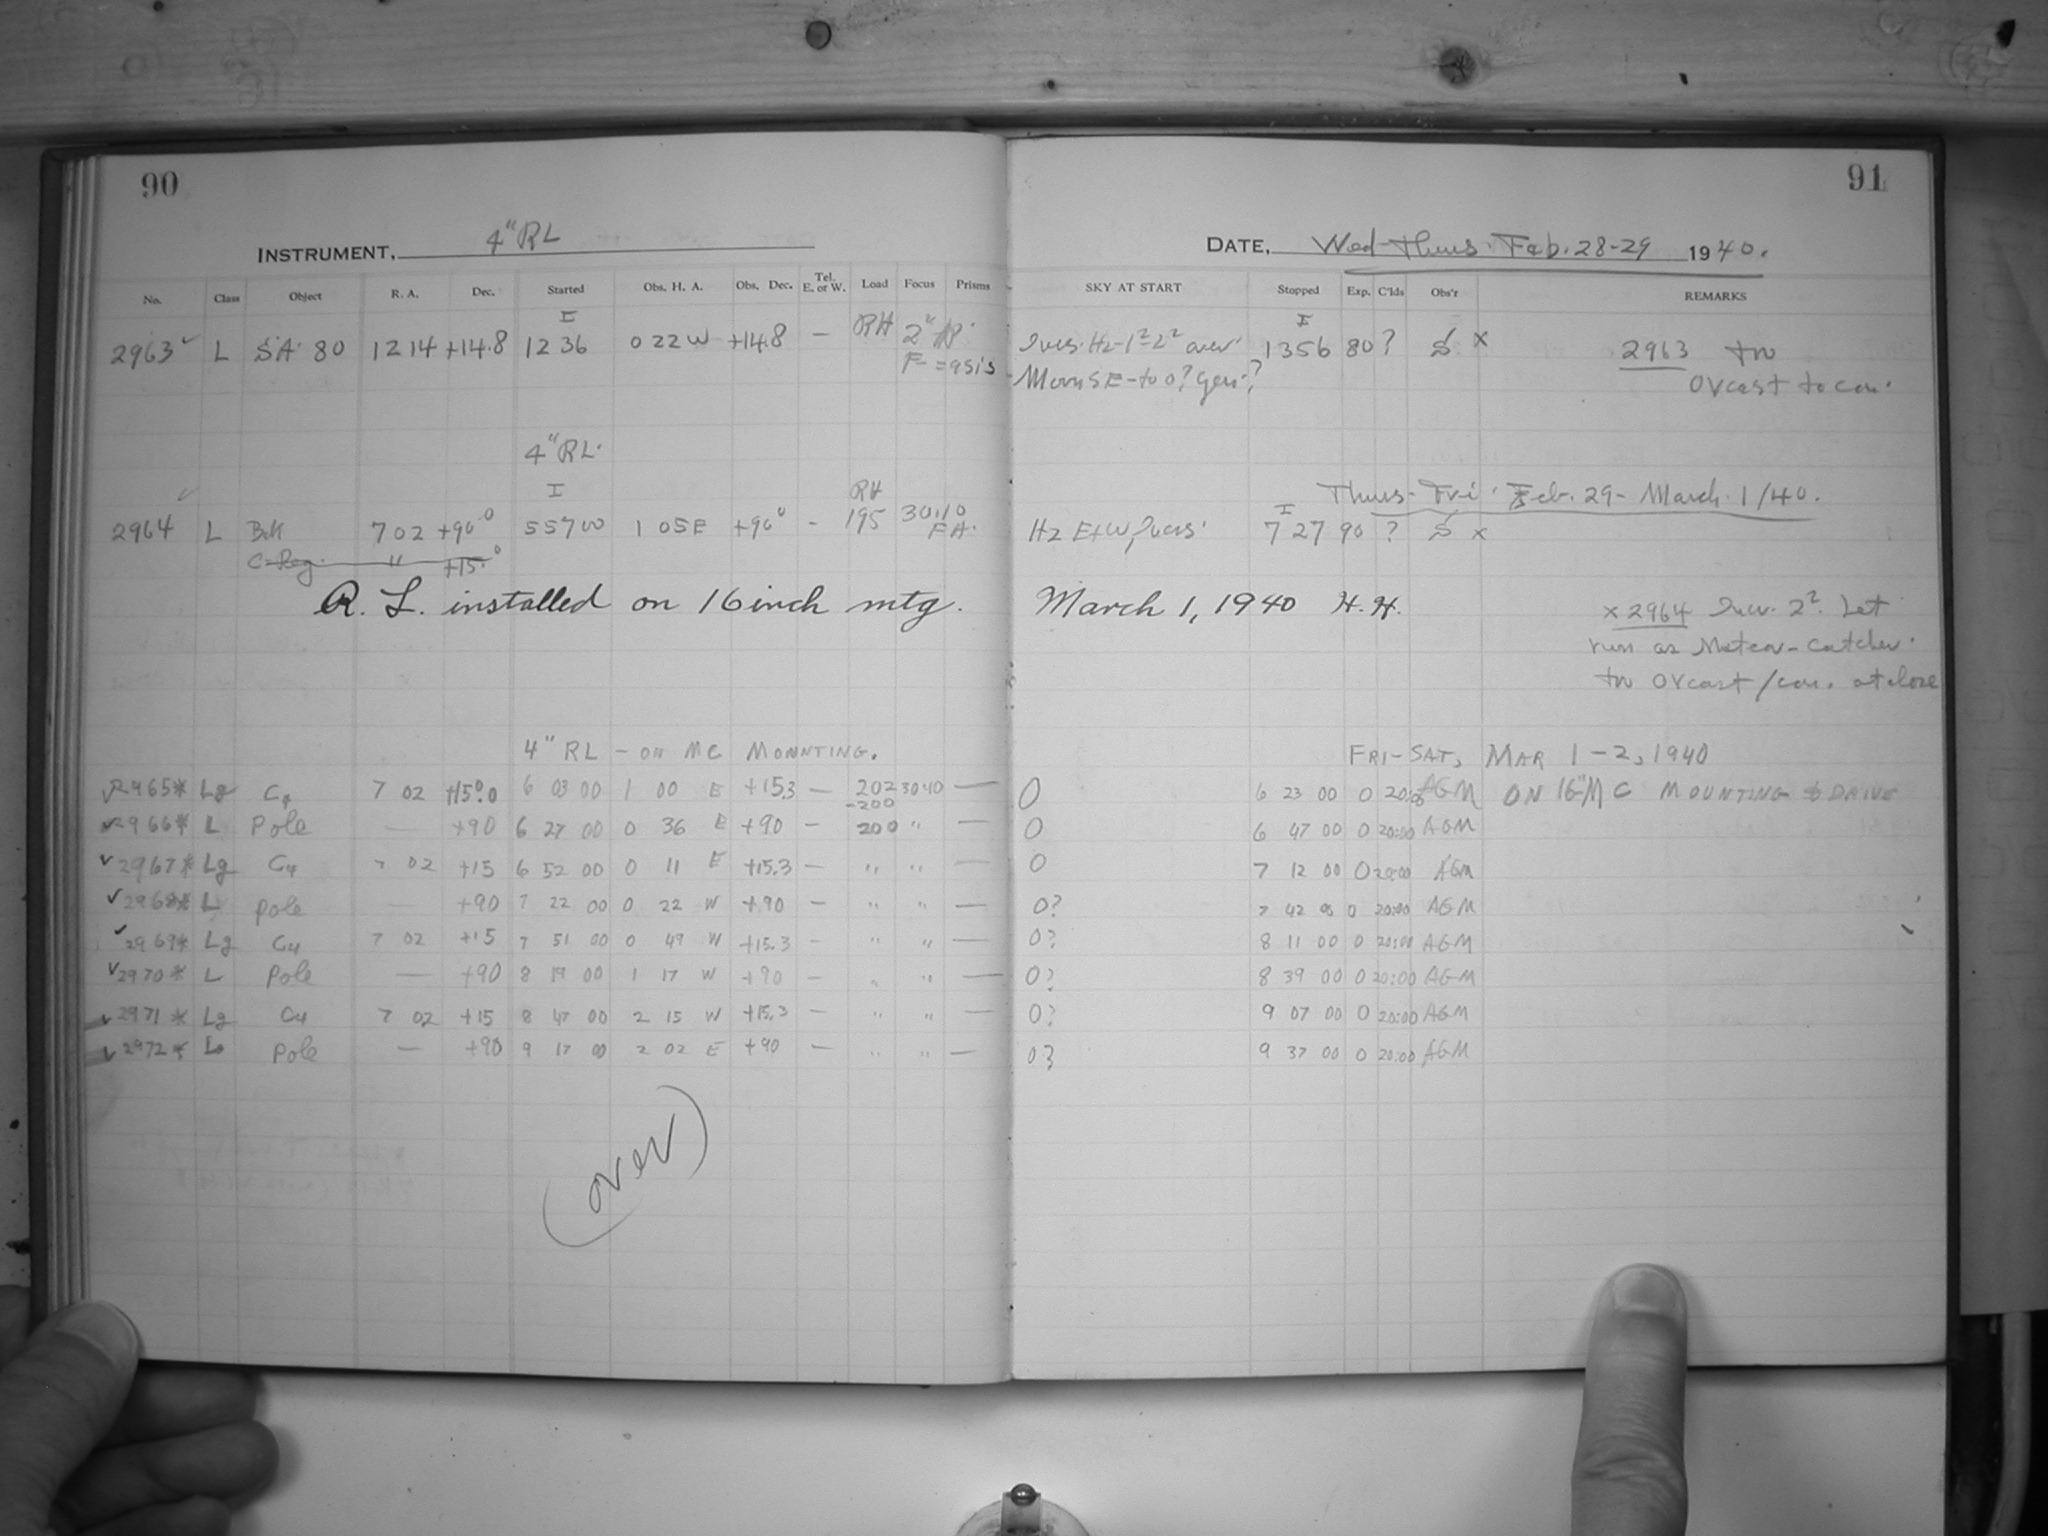 90
91
INSTRUMENT, 4" RL
DATE, Wed-Thurs. Feb. 28-29 1940.
No. Class Object R. A. Dec. Started Obs. H. A. Obs. Dec. Tel. E. or W. Load Focus Prisms SKY AT START Stopped Exp. C'lds Obs'r REMARKS
I RH 2" I
2963 L SA 80 12 14 +14.8 12 36 0 22 W +14.8 — 1356 80 ? x 2963
Moon SE - to 0? Gen.? OVcast to con.
4" RL.
I RH Thurs-Fri. Feb. 29 - March 1/40.
2964 L 7 02 +90° 5 57 00 1 05 E +90° - 195 30.10 Hz E+W, I 7 27 90 ? x
C-Reg. " +15.°
R. L. installed on 16 inch mtg. March 1, 1940 H. H.
x 2964 2². Let
run as Meteor-catcher
OVcast / con. at close
4" RL - ON MC MOUNTING. FRI-SAT, MAR 1-2, 1940
2965* Lg C4 7 02 +15°.0 6 03 00 1 00 E +15.3 — 202 30.10 — 0 6 23 00 0 20:00 AGM ON 16" MC MOUNTING & DRIVE
-200
2966* L Pole — +90 6 27 00 0 36 E +90 — 200 " — 0 6 47 00 0 20:00 AGM
2967* Lg C4 7 02 +15 6 52 00 0 11 E +15.3 — " " — 0 7 12 00 0 20:00 AGM
2968* L Pole — +90 7 22 00 0 22 W +90 — " " — 0? 7 42 00 0 20:00 AGM
2969* Lg C4 7 02 +15 7 51 00 0 49 W +15.3 — " " — 0? 8 11 00 0 20:00 AGM
2970* L Pole — +90 8 19 00 1 17 W +90 — " " — 0? 8 39 00 0 20:00 AGM
2971* Lg C4 7 02 +15 8 47 00 2 15 W +15.3 — " " — 0? 9 07 00 0 20:00 AGM
2972* L Pole — +90 9 17 00 2 02 E +90 — " " — 0? 9 37 00 0 20:00 AGM
(over)